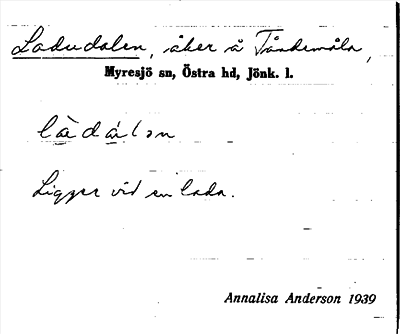 Ladudalen, åker å Tåndemåla,
Myresjö sn, Östra hd, Jönk. l.
Ligger vid en lada.
Annalisa Anderson 1939